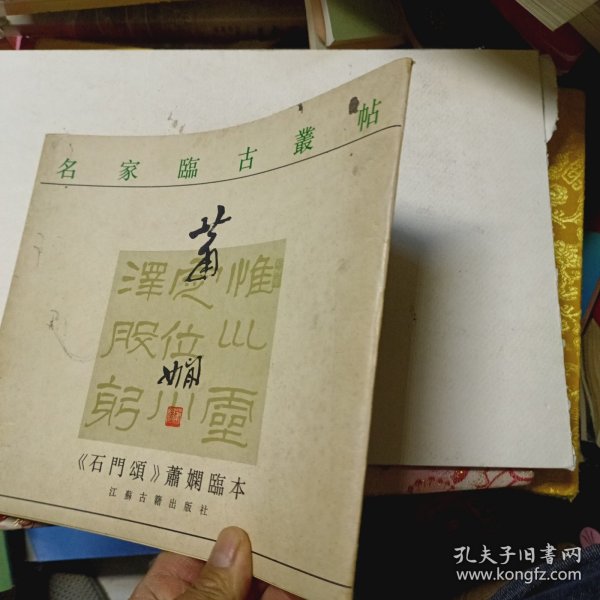 名家臨古叢帖
蕭
嫻
惟巛靈
定位川
澤股躬
《石門頌》蕭嫻臨本
江蘇古籍出版社
孔夫子旧书网
www.kongfz.com